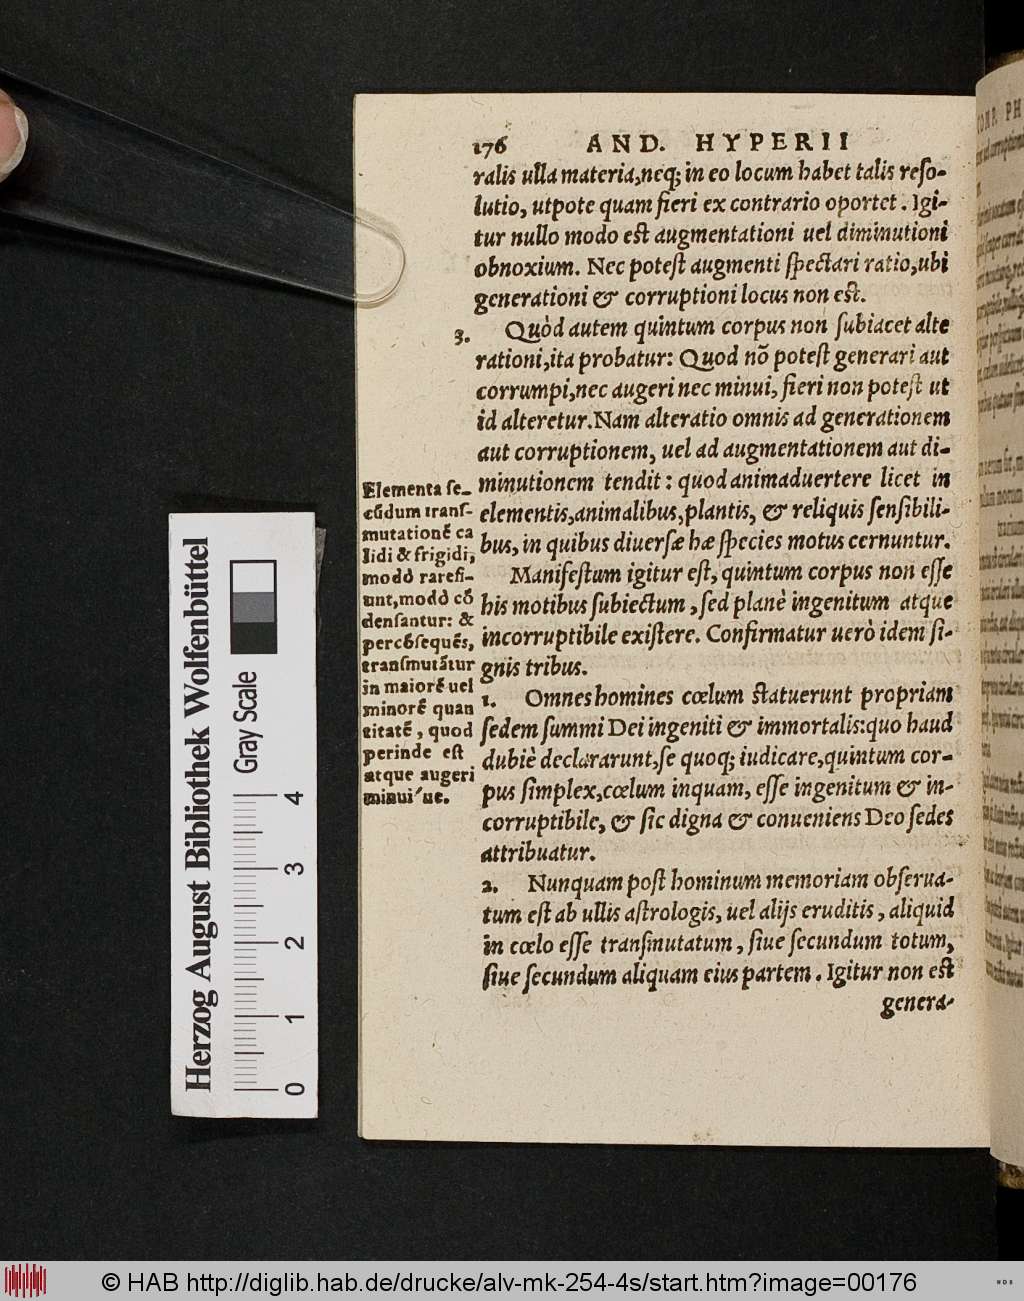 176 AND. HYPERII
ralis ulla materia, neq; in eo locum habet talis reso-
lutio, utpote quam fieri ex contrario oportet. Igi-
tur nullo modo est augmentationi uel diminutioni
obnoxium. Nec potest augmenti spectari ratio, ubi
generationi & corruptioni locus non est.
3. Quòd autem quintum corpus non subiacet alte
rationi, ita probatur: Quod nō potest generari aut
corrumpi, nec augeri nec minui, fieri non potest ut
id alteretur. Nam alteratio omnis ad generationem
aut corruptionem, uel ad augmentationem aut di-
minutionem tendit: quod animaduertere licet in
elementis, animalibus, plantis, & reliquis sensibili-
bus, in quibus diuersæ hæ species motus cernuntur.
Manifestum igitur est, quintum corpus non esse
his motibus subiectum, sed planè ingenitum atque
incorruptibile existere. Confirmatur uerò idem si-
gnis tribus.
1. Omnes homines cœlum statuerunt propriam
sedem summi Dei ingeniti & immortalis: quo haud
dubiè declararunt, se quoq; iudicare, quintum cor-
pus simplex, cœlum inquam, esse ingenitum & in-
corruptibile, & sic digna & conueniens Deo sedes
attribuatur.
2. Nunquam post hominum memoriam obserua-
tum est ab ullis astrologis, uel alijs eruditis, aliquid
in cœlo esse transmutatum, siue secundum totum,
siue secundum aliquam eius partem. Igitur non est
genera-
Elementa se-
cūdum trans-
mutationē ca
lidi & frigidi,
modò rarefi-
unt, modò cō
densantur: &
percōsequēs,
transmutātur
in maiorē uel
minorē quan
titatē, quod
perinde est
atque augeri
minui'ue.
Herzog August Bibliothek Wolfenbüttel
Gray Scale
0 1 2 3 4
© HAB http://diglib.hab.de/drucke/alv-mk-254-4s/start.htm?image=00176